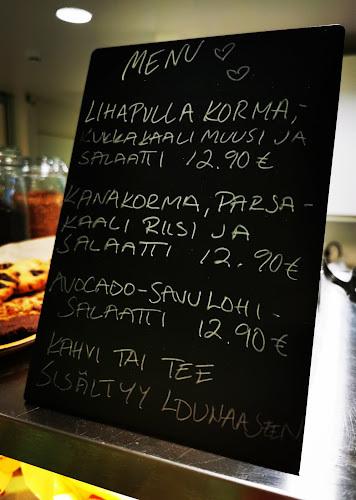 MENU ♡ ♡
LIHAPULLA KORMA,-
KUKKAKAALI MUUSI JA
SALAATTI 12.90 €
KANAKORMA, PARSA-
KAALI RIISI JA
SALAATTI 12.90€
AVOCADO-SAVULOHI-
SALAATTI 12.90€
KAHVI TAI TEE
SISÄLTYY LOUNAASEEN